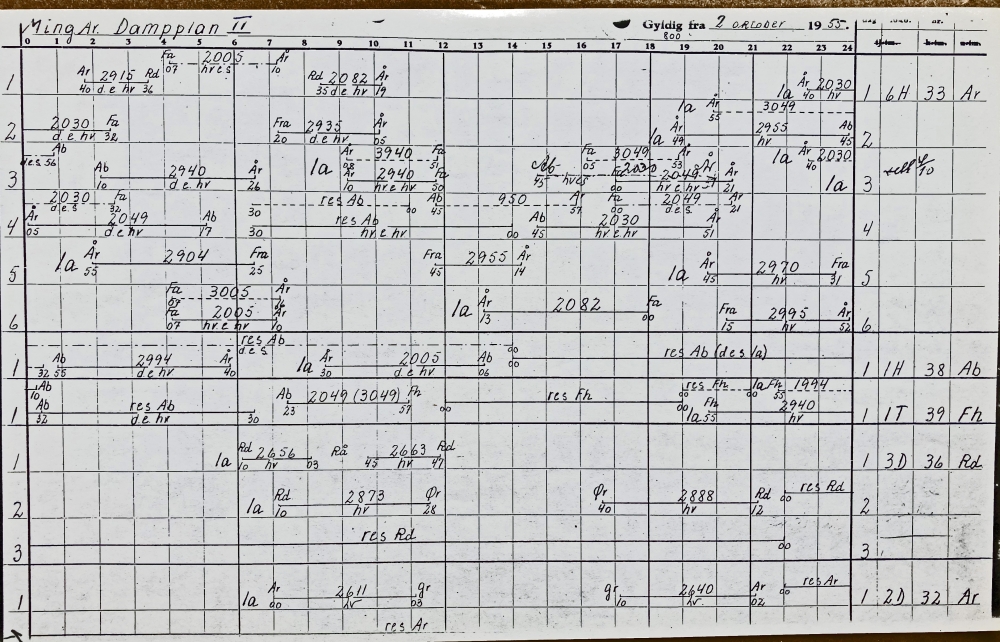 Ming Ar. Dampplan II Gyldig fra 2 oktober 1955.
800
0 1 2 3 4 5 6 7 8 9 10 11 12 13 14 15 16 17 18 19 20 21 22 23 24
Fa 2005 År
07 hves 10
1 Ar 2915 Rd Rd 2082 År 1a År 2030 1 6H 33 Ar
40 d e hv 36 35 de hv 19 40 hv
1a År 3049
55
2 2030 Fa Fra 2935 År 1a År 2955 Ab 2
d e hv 32 20 d e hv 05 49 hv 45
Ab År 3940 Fa Fa 3049 År 1a År 2030
des 56 08 51 05 53 40
3 Ab 2940 År 1a År 2940 Fa Ab 2030 2049 År 1a 3
10 d e hv 26 10 hv e hv 50 45 hves 00 hv e hv 21
2030 Fa res Ab Ab 950 Ar 2049 År
d e s 32 30 00 45 57 00 d e s 21
4 År 2049 Ab res Ab Ab 2030 År 4
05 d e hv 17 30 hv e hv 00 45 hv e hv 51
5 1a År 2904 Fra Fra 2955 År 1a År 2970 Fra 5
55 25 45 14 45 hv 31
Fa 3005 År
6 Fa 2005 År 1a År 2082 Fa Fa 2995 År 6
07 hv e hv 10 13 00 15 hv 52
res Ab
d e s 00
1 Ab 2994 Ar 1a År 2005 Ab res Ab (des 1a) 1 1H 38 Ab
32 55 d e hv 40 30 d e hv 06
Ab res Fh 1a Fh 1994
10 00 55
1 Ab res Ab Ab 2049 (3049) Fh res Fh 1a Fh 2940 1 1T 39 Fh
32 d e hv 30 23 57 00 00 55 hv
1 1a Rd 2656 Rå 2663 Rd 1 3D 36 Rd
10 hv 03 45 hv 47
2 1a Rd 2873 Ør Ør 2888 Rd res Rd 2
10 hv 28 40 hv 12 00
3 res Rd 3
00
1 1a Ar 2611 gr gr 2640 Ar res Ar 1 2D 32 Ar
00 hv 03 10 hv 02 00
res Ar